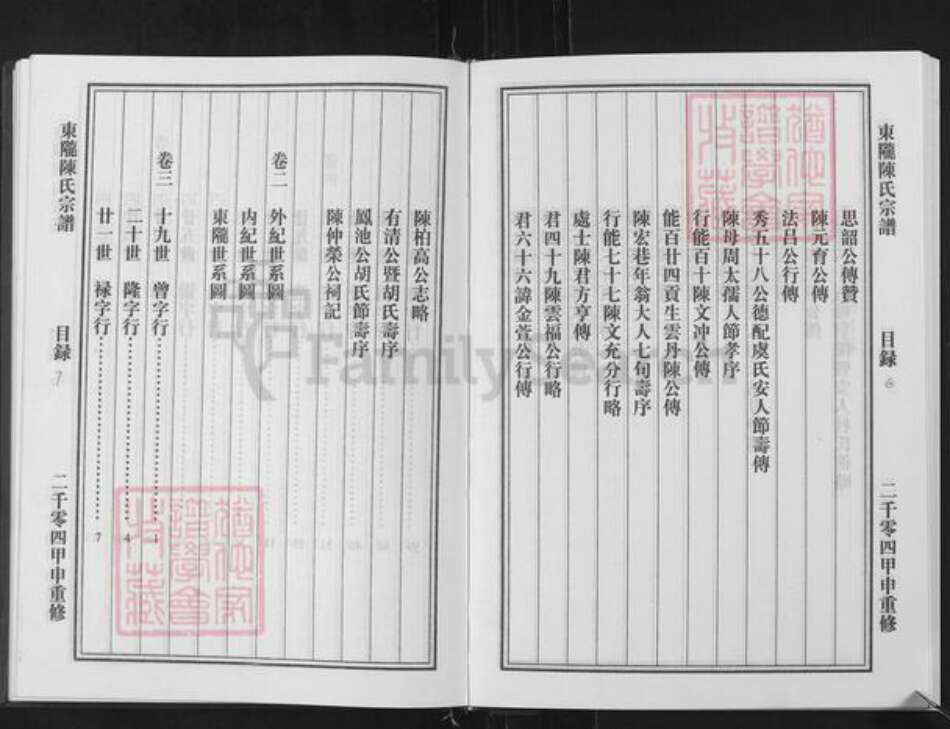 東隴陳氏宗譜
目録
6
二千零四甲申重修
思韶公傳贊
陳元育公傳
法呂公行傳
秀五十八公德配虞氏安人節壽傳
陳母周太孺人節孝序
行能百十陳文冲公傳
能百廿四貢生雲丹陳公傳
陳宏巷年翁大人七旬壽序
行能七十七陳文充分行略
處士陳君方亨傳
君四十九陳雲福公行略
君六十六諱金萱公行傳
陳柏高公志略
有清公暨胡氏壽序
鳳池公胡氏節壽序
陳仲榮公祠記
卷二 外紀世系圖
内紀世系圖
東隴世系圖
卷三 十九世 曾字行 1
二十世 隆字行 4
廿一世 禄字行 7
東隴陳氏宗譜
目録
7
二千零四甲申重修
FamilySearch